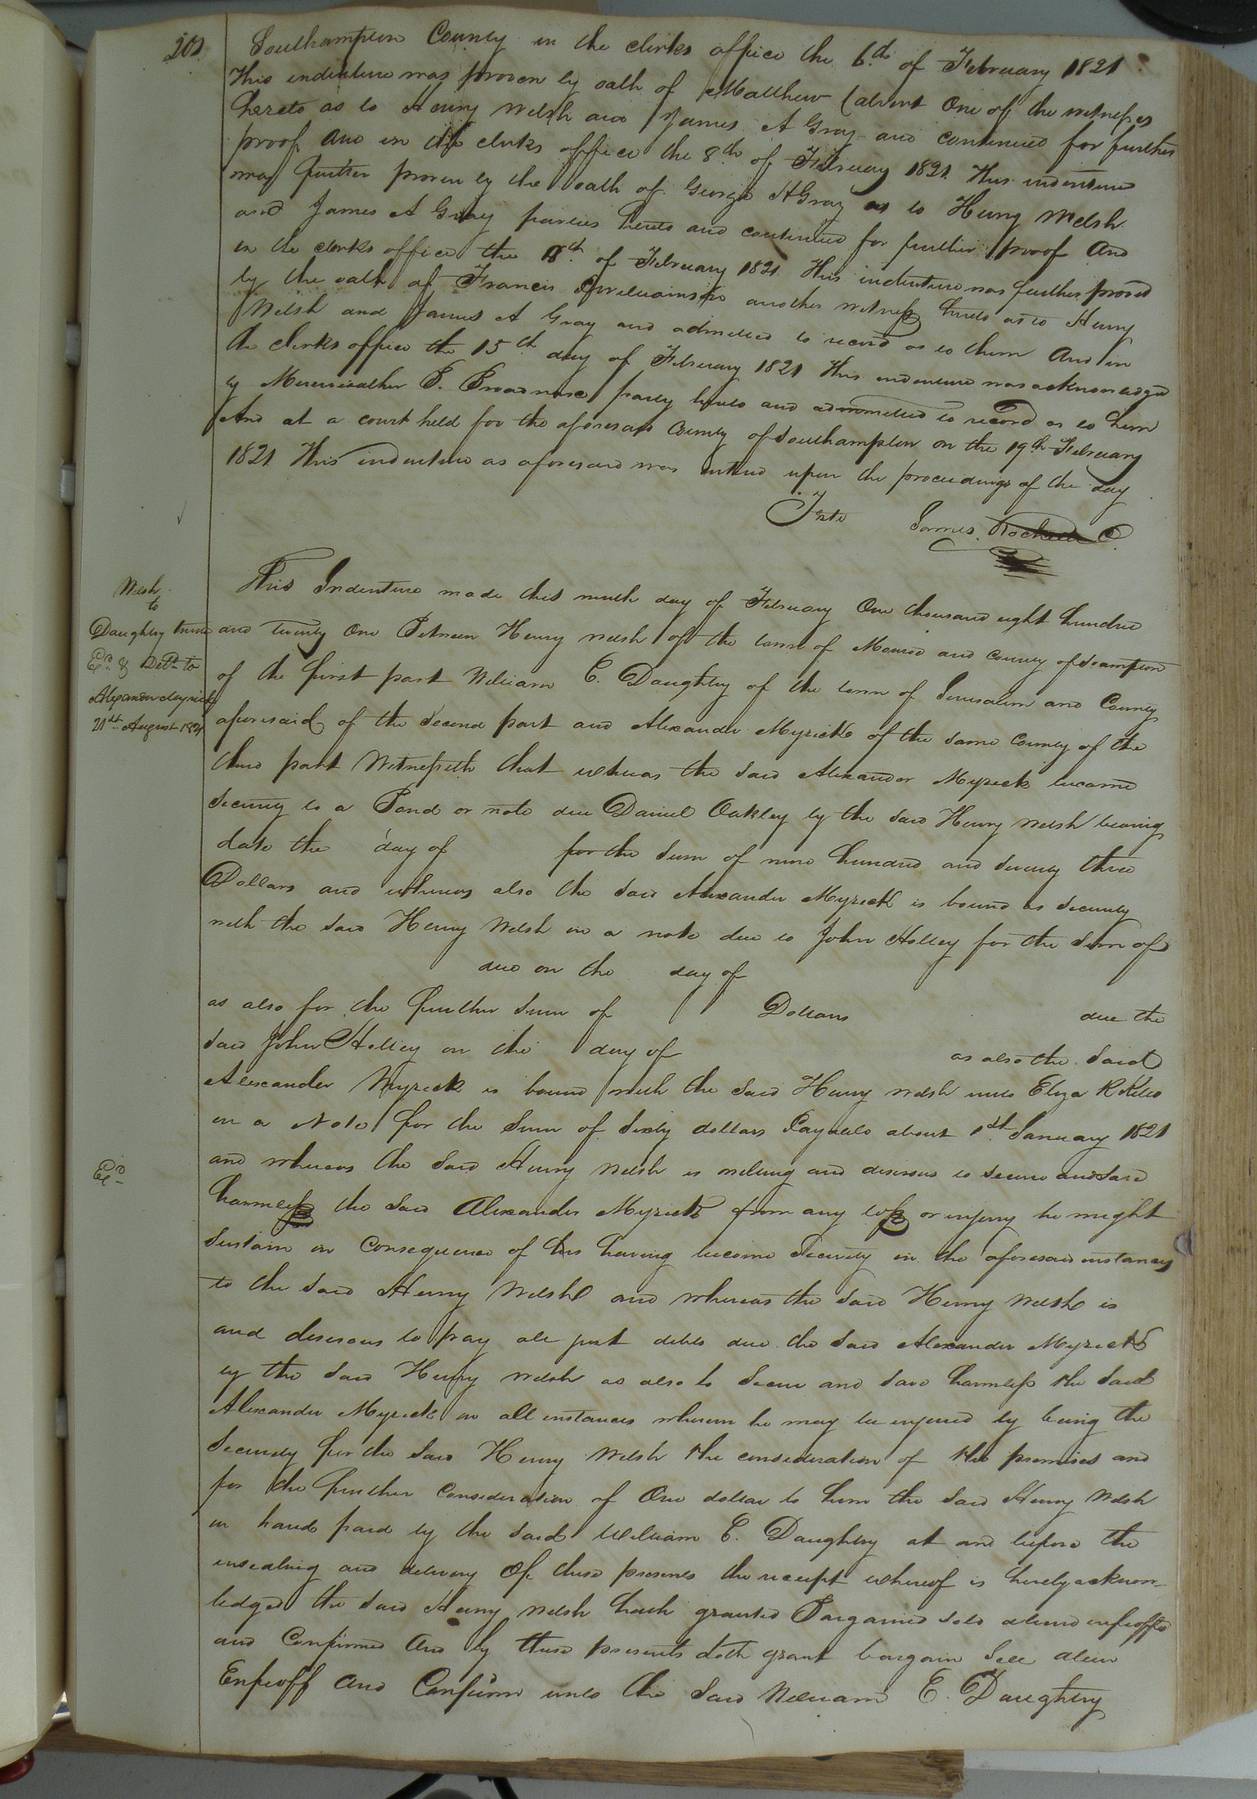 202
Southampton County in the clerks office the 6th of February 1821
This indenture was proven by oath of Matthew Calvert One of the witnesses
hereto as to Henry Welsh and James A Gray and continued for further
proof And in the clerks office the 8th of February 1821 This indenture
was further proven by the oath of George H Gray as to Henry Welsh
and James A Gray parties hereto and continued for further proof And
in the clerks office the of February 1821 This indenture was further proved
by the oath of Francis Williamson another witness hereto as to Henry
Welsh and James A Gray and admitted to record as to them And in
the clerks office the 15th day of February 1821 This indenture was acknowledged
by Mereweather B. Broadnax party hereto and admitted to record as to him
And at a court held for the aforesaid County of Southampton on the 19th February
1821 This indenture as aforesaid was entered upon the proceedings of the day
Teste James Rochelle C.
Welsh
to
Daughtry trustee
Exd & Deld to
Alexander Myrick
21st August 1821
This Indenture made this ninth day of February One thousand eight hundred
and twenty One Between Henry Welsh of the town of Monroe and County of Shampton
of the first part William E. Daughtry of the town of Jerusalem and County
aforesaid of the Second part and Alexander Myrick of the same County of the
third part Witnesseth that whereas the said Alexander Myrick became
Security to a Bond or note due Daniel Oakley by the said Henry Welsh bearing
date the day of for the Sum of nine hundred and seventy three
Dollars and whereas also the said Alexander Myrick is bound as Security
with the said Henry Welsh in a note due to John Holley for the Sum of
due on the day of
as also for the further Sum of Dollars due the
said John Holley on the day of as also the Said
Alexander Myrick is bound with the said Henry Welsh unto Eliza R
in a Note for the Sum of Sixty dollars Payable about 1st January 1821
Exd
and whereas the said Henry Welsh is willing and desirous to secure and save
harmless the said Alexander Myrick from any loss or injury he might
Sustain in Consequence of his having become Security in the aforesaid instances
to the said Henry Welsh and whereas the said Henry Welsh is
and desirous to pay all just debts due the said Alexander Myrick
by the said Henry Welsh as also to secure and save harmless the said
Alexander Myrick in all instances wherein he may be injured by being the
Security for the said Henry Welsh the consideration of the premises and
for the further Consideration of One dollar to him the said Henry Welsh
in hand paid by the said William E. Daughtry at and before the
ensealing and delivery Of these presents the receipt whereof is hereby acknow-
ledged the said Henry Welsh hath granted Bargained sold aliend enfeoffd
and Confirmed And by these presents doth grant bargain Sell alien
Enfeoff And Confirm unto the said William E. Daughtry